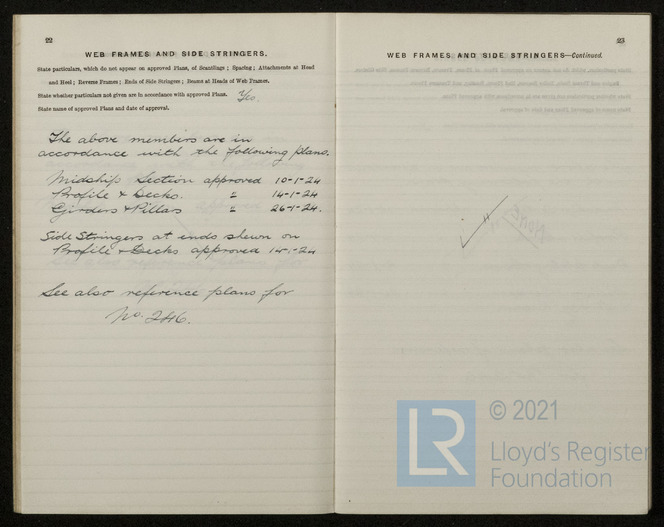 22
WEB FRAMES AND SIDE STRINGERS.
State particulars, which do not appear on approved Plans, of Scantlings; Spacing; Attachments at Head
and Heel; Reverse Frames; Ends of Side Stringers; Beams at Heads of Web Frames.
State whether particulars not given are in accordance with approved Plans. Yes.
State name of approved Plans and date of approval.
The above members are in
accordance with the following plans.
Midship Section approved 10-1-24
Profile & Decks. " 14-1-24
Girders & Pillars " 26-1-24.
Side Stringers at ends shewn on
Profile & Decks approved 14-1-24
See also reference plans for
No. 246.
23
WEB FRAMES AND SIDE STRINGERS—Continued.
LR
© 2021
Lloyd's Register
Foundation